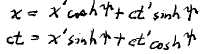 x = x' cosh ψ + ct' sinh ψ
ct = x' sinh ψ + ct' cosh ψ